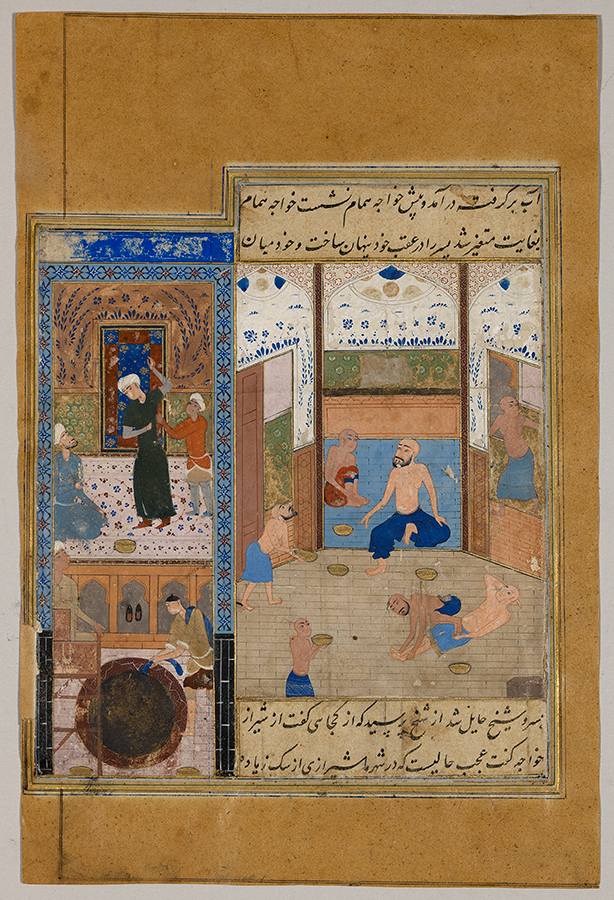 آب برگرفته درآمد و پیش خواجه همام نشست خواجه همام
بغایت متغیر شد پسر را در عقب خود پنهان ساخت و خود میان
پسر و شیخ حایل شد از شیخ پرسید که از کجایی گفت از شیراز
خواجه گفت عجب حالیست که در شهر ما شیرازی از سک زیاده